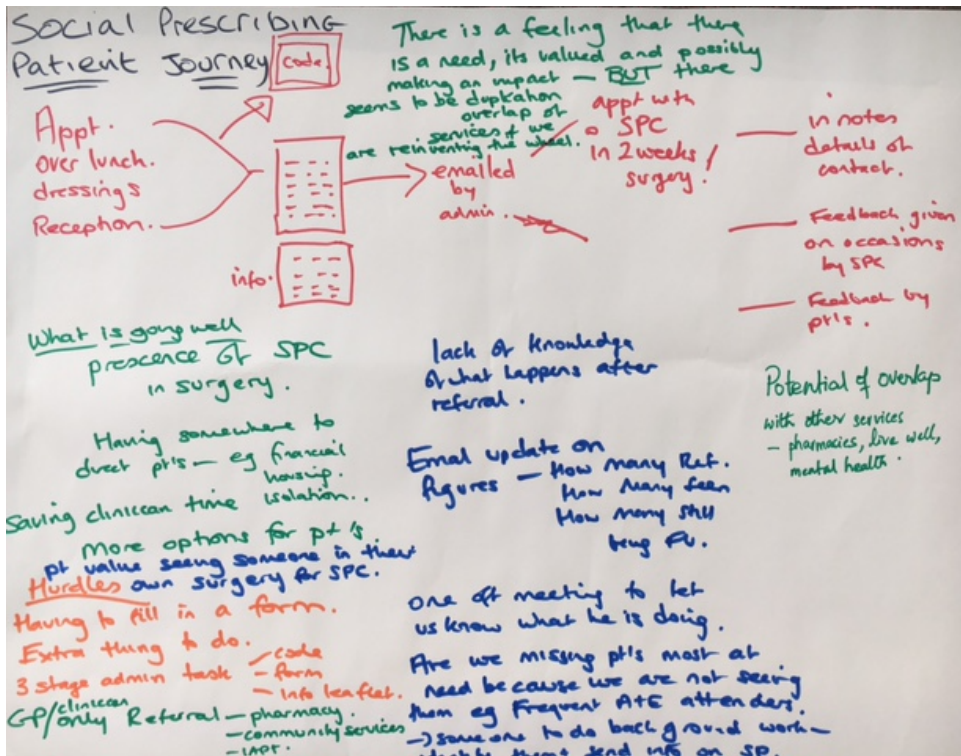 Social Prescribing
Patient Journey
code.
There is a feeling that there
is a need, its valued and possibly
making an impact — BUT there
seems to be duplication
overlap of
services + we
are reinventing the wheel.
Appt.
over lunch.
dressings
Reception.
info.
emailed
by
admin.
appt with
SPC
in 2 weeks
surgery!
in notes
details of
contact.
Feedback given
on occasions
by SPC
Feedback by
pt's.
What is going well
prescence of SPC
in surgery.
Having somewhere to
direct pt's — eg financial
housing.
isolation..
Saving clinician time
More options for pt's.
pt value seeing someone in their
own surgery for SPC.
Hurdles
Having to fill in a form.
Extra thing to do.
3 stage admin task - code
- form
- info leaflet.
GP/clinician
only Referral — pharmacy.
— community services
— IAPT.
lack of knowledge
of what happens after
referral.
Email update on
figures — How many Ref.
How many seen
How many still
being FU.
one off meeting to let
us know what he is doing.
Are we missing pt's most at
need because we are not seeing
them eg Frequent A+E attenders.
→ someone to do background work—
them send info on SP.
Potential of overlap
with other services
— pharmacies, live well,
mental health.